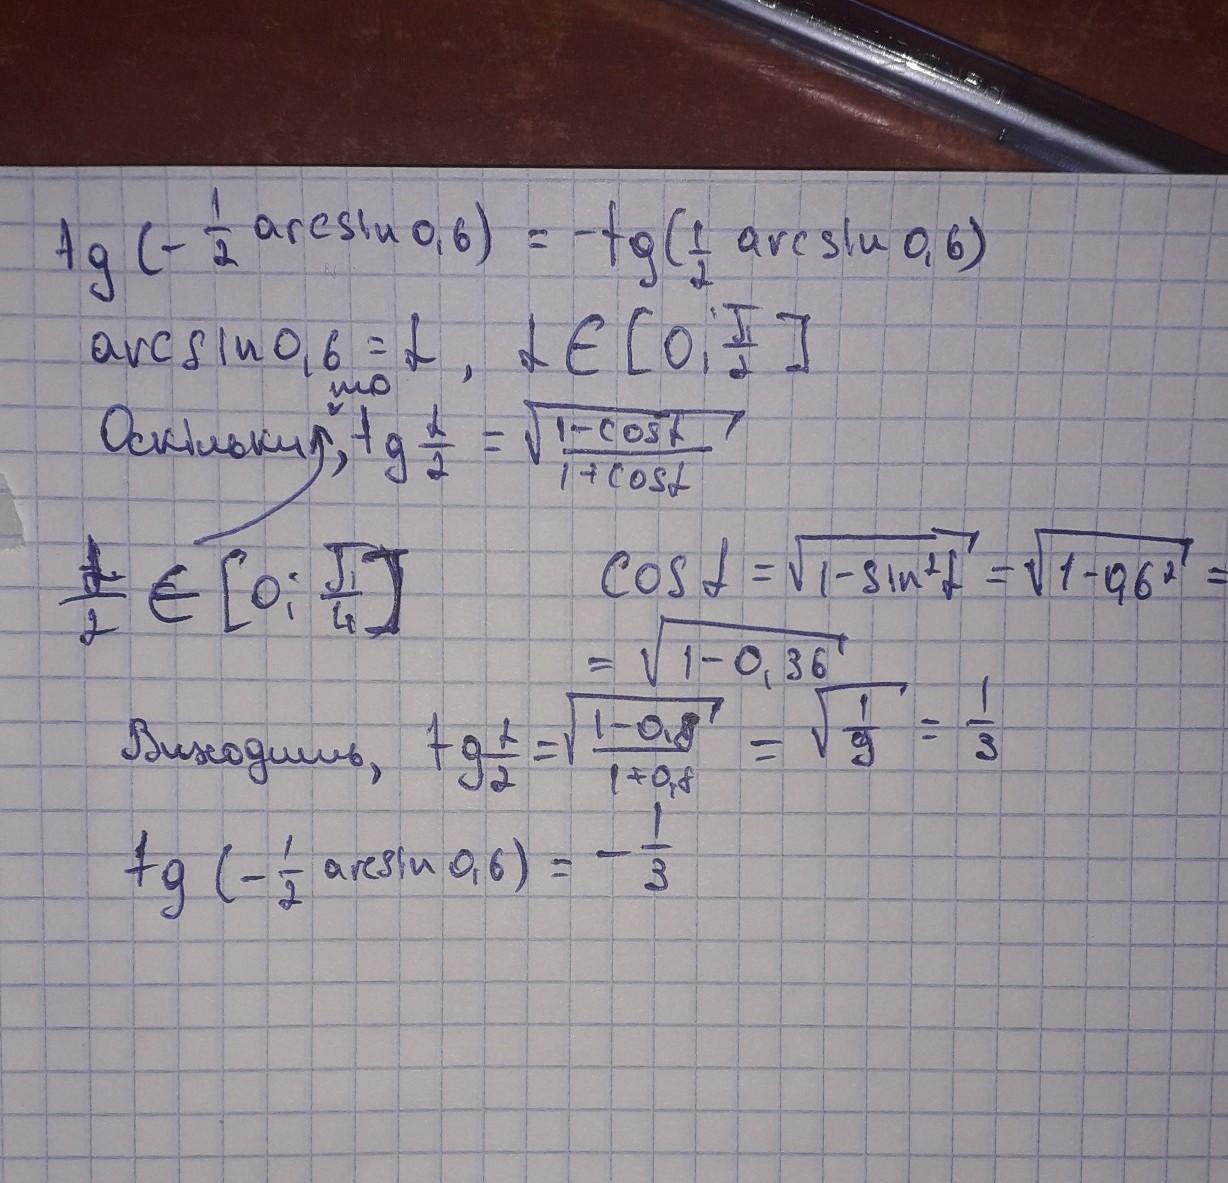 tg (- 1/2 arcsin 0,6) = - tg (1/2 arcsin 0,6)
arcsin 0,6 = α, α ∈ [0; π/2]
то
Оскільки, tg α/2 = √((1-cosα)/(1+cosα))
α/2 ∈ [0; π/4]
cos α = √(1-sin²α) = √(1-0,6²) =
= √(1-0,36)
Виходить, tg α/2 = √((1-0,8)/(1+0,8)) = √(1/9) = 1/3
tg (- 1/2 arcsin 0,6) = - 1/3